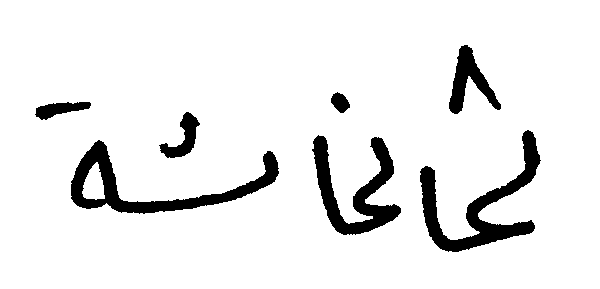 ثمانمائة